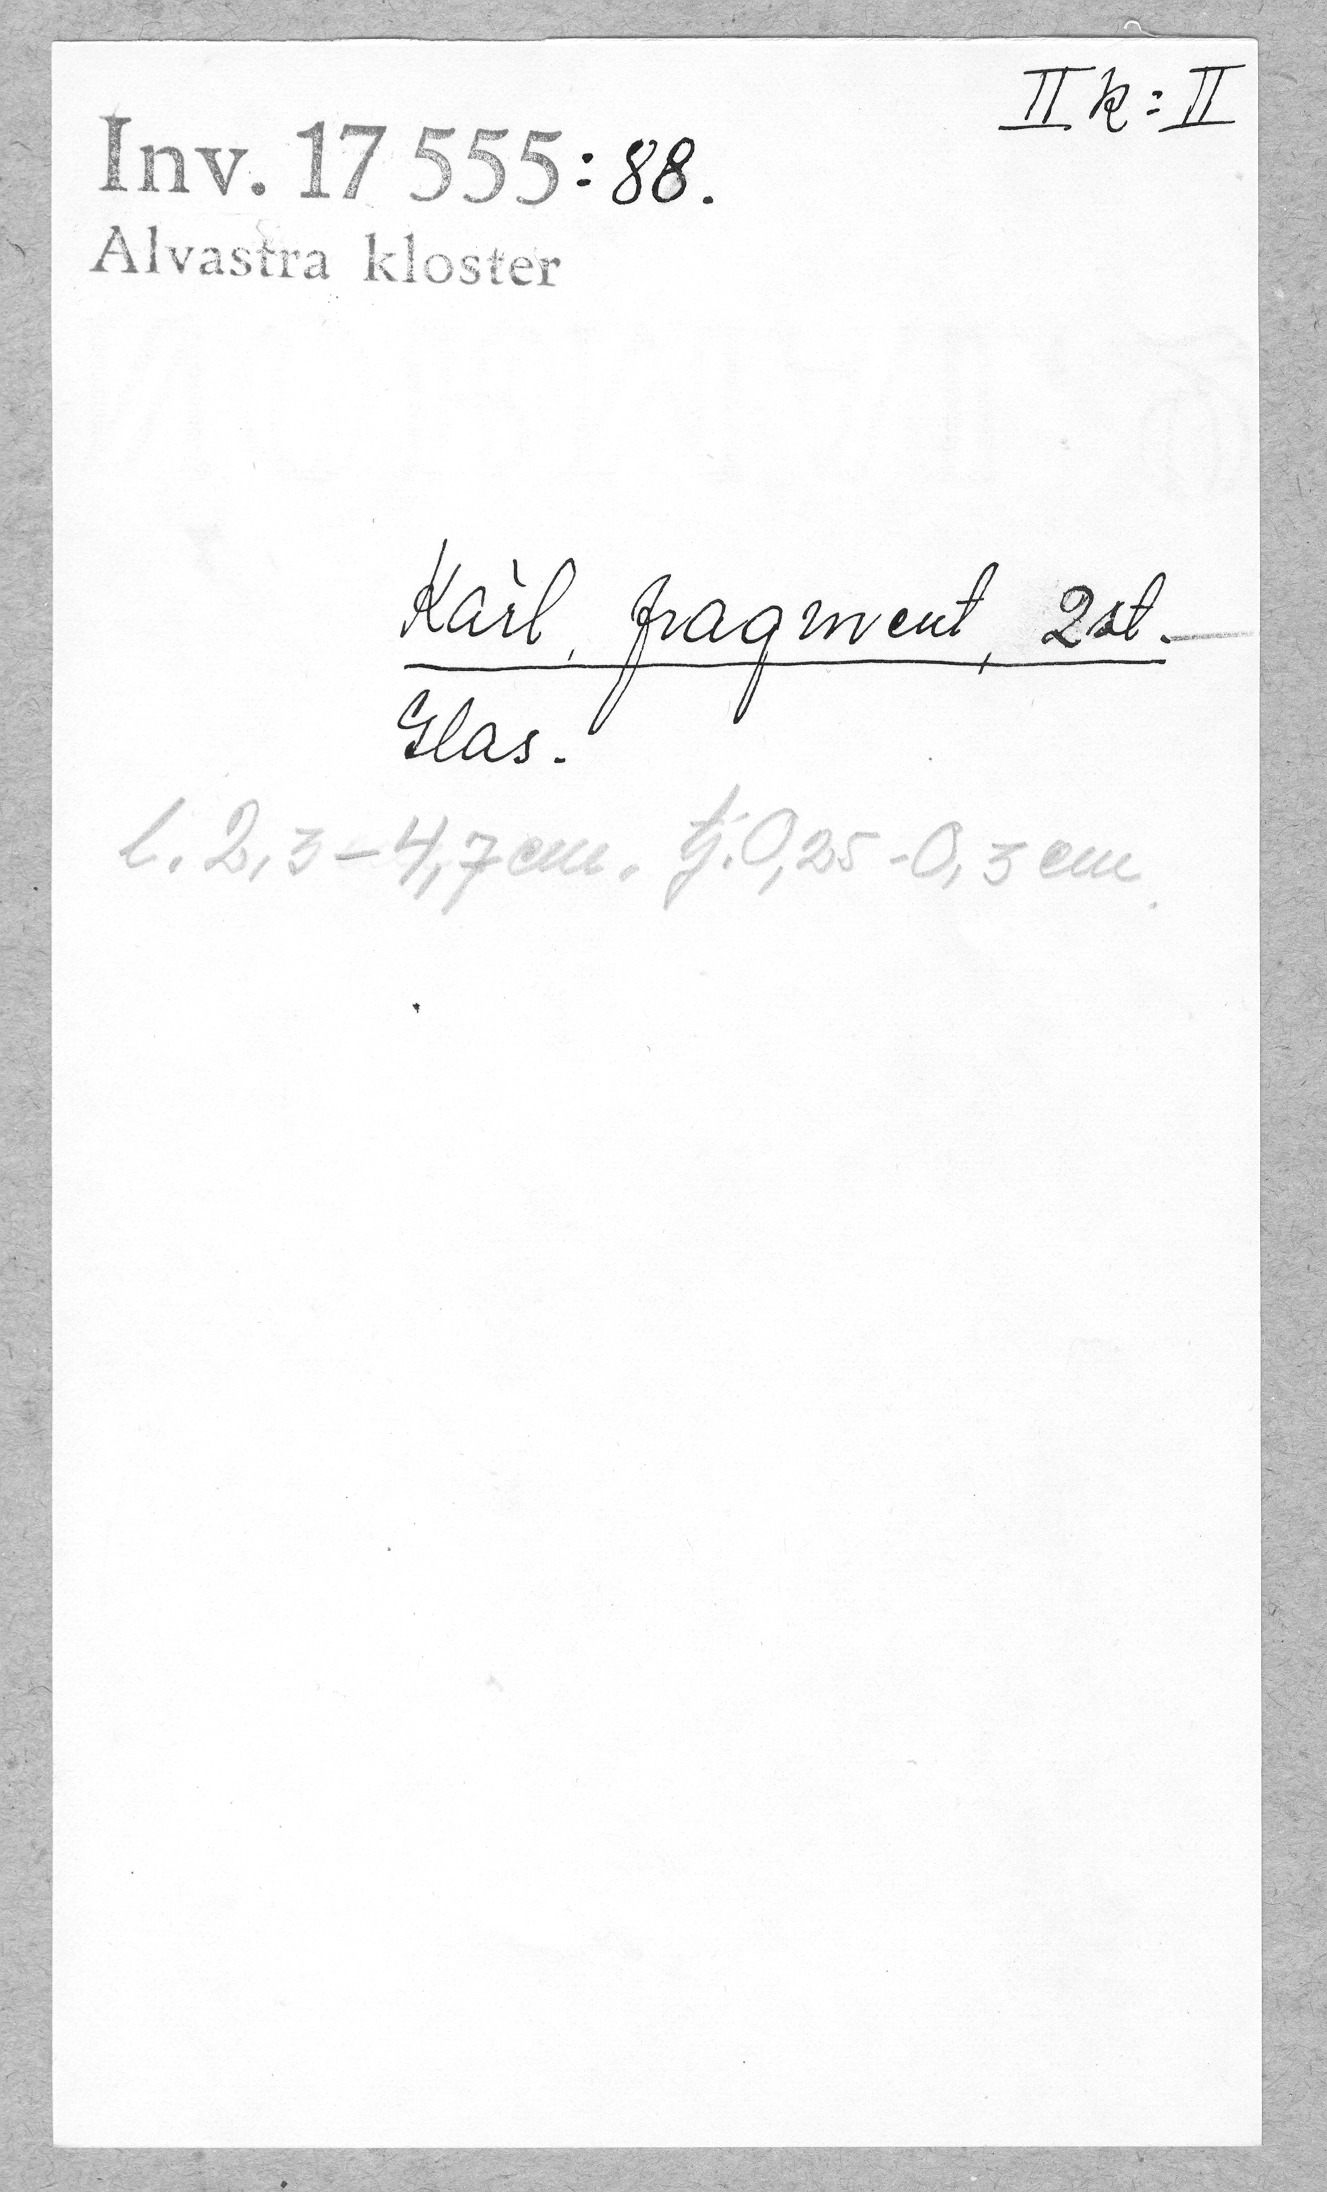 II k:II
Inv. 17 555:88.
Alvastra kloster
Kärl, fragment, 2st.
Glas.
l. 2,3-4,7 cm. tj. 0,25-0,3 cm.